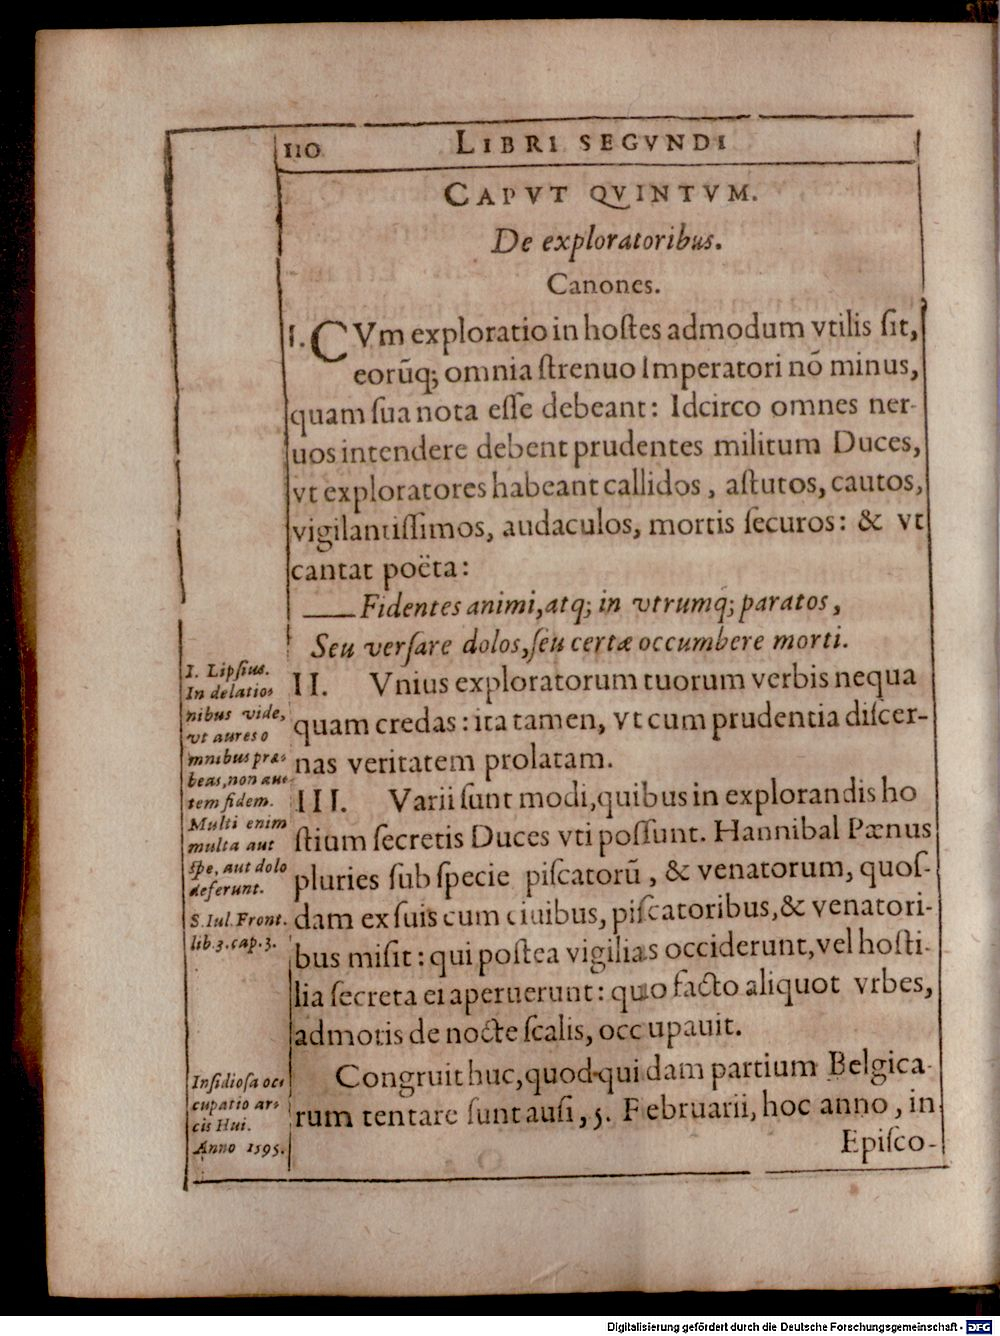 110 LIBRI SEGVNDI
CAPVT QVINTVM.
De exploratoribus.
Canones.
I. CVm exploratio in hoſtes admodum vtilis ſit,
eorũq; omnia ſtrenuo Imperatori nõ minus,
quam ſua nota eſſe debeant: Idcirco omnes ner-
uos intendere debent prudentes militum Duces,
vt exploratores habeant callidos, aſtutos, cautos,
vigilantiſſimos, audaculos, mortis ſecuros: & vt
cantat poëta:
——Fidentes animi, atq; in vtrumq; paratos,
Seu verſare dolos, ſeu certæ occumbere morti.
II. Vnius exploratorum tuorum verbis nequa
quam credas: ita tamen, vt cum prudentia diſcer-
nas veritatem prolatam.
III. Varii ſunt modi, quibus in explorandis ho
ſtium ſecretis Duces vti poſſunt. Hannibal Pænus
pluries ſub ſpecie piſcatorũ, & venatorum, quoſ-
dam ex ſuis cum ciuibus, piſcatoribus, & venatori-
bus miſit: qui poſtea vigilias occiderunt, vel hoſti-
lia ſecreta ei aperuerunt: quo facto aliquot vrbes,
admotis de nocte ſcalis, occupauit.
Congruit huc, quod quidam partium Belgica-
rum tentare ſunt auſi, 5. Februarii, hoc anno, in
Epiſco-
I. Lipſius.
In delatio-
nibus vide,
vt aures o
mnibus præ-
beas, non au-
tem fidem.
Multi enim
multa aut
ſpe, aut dolo
deferunt.
S. Iul. Front.
lib. 3. cap. 3.
Inſidioſa oc-
cupatio ar-
cis Hui.
Anno 1595.
Digitalisierung gefördert durch die Deutsche Forschungsgemeinschaft - DFG